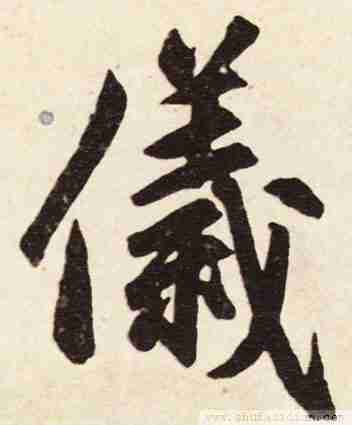 儀
www.shufazidian.com